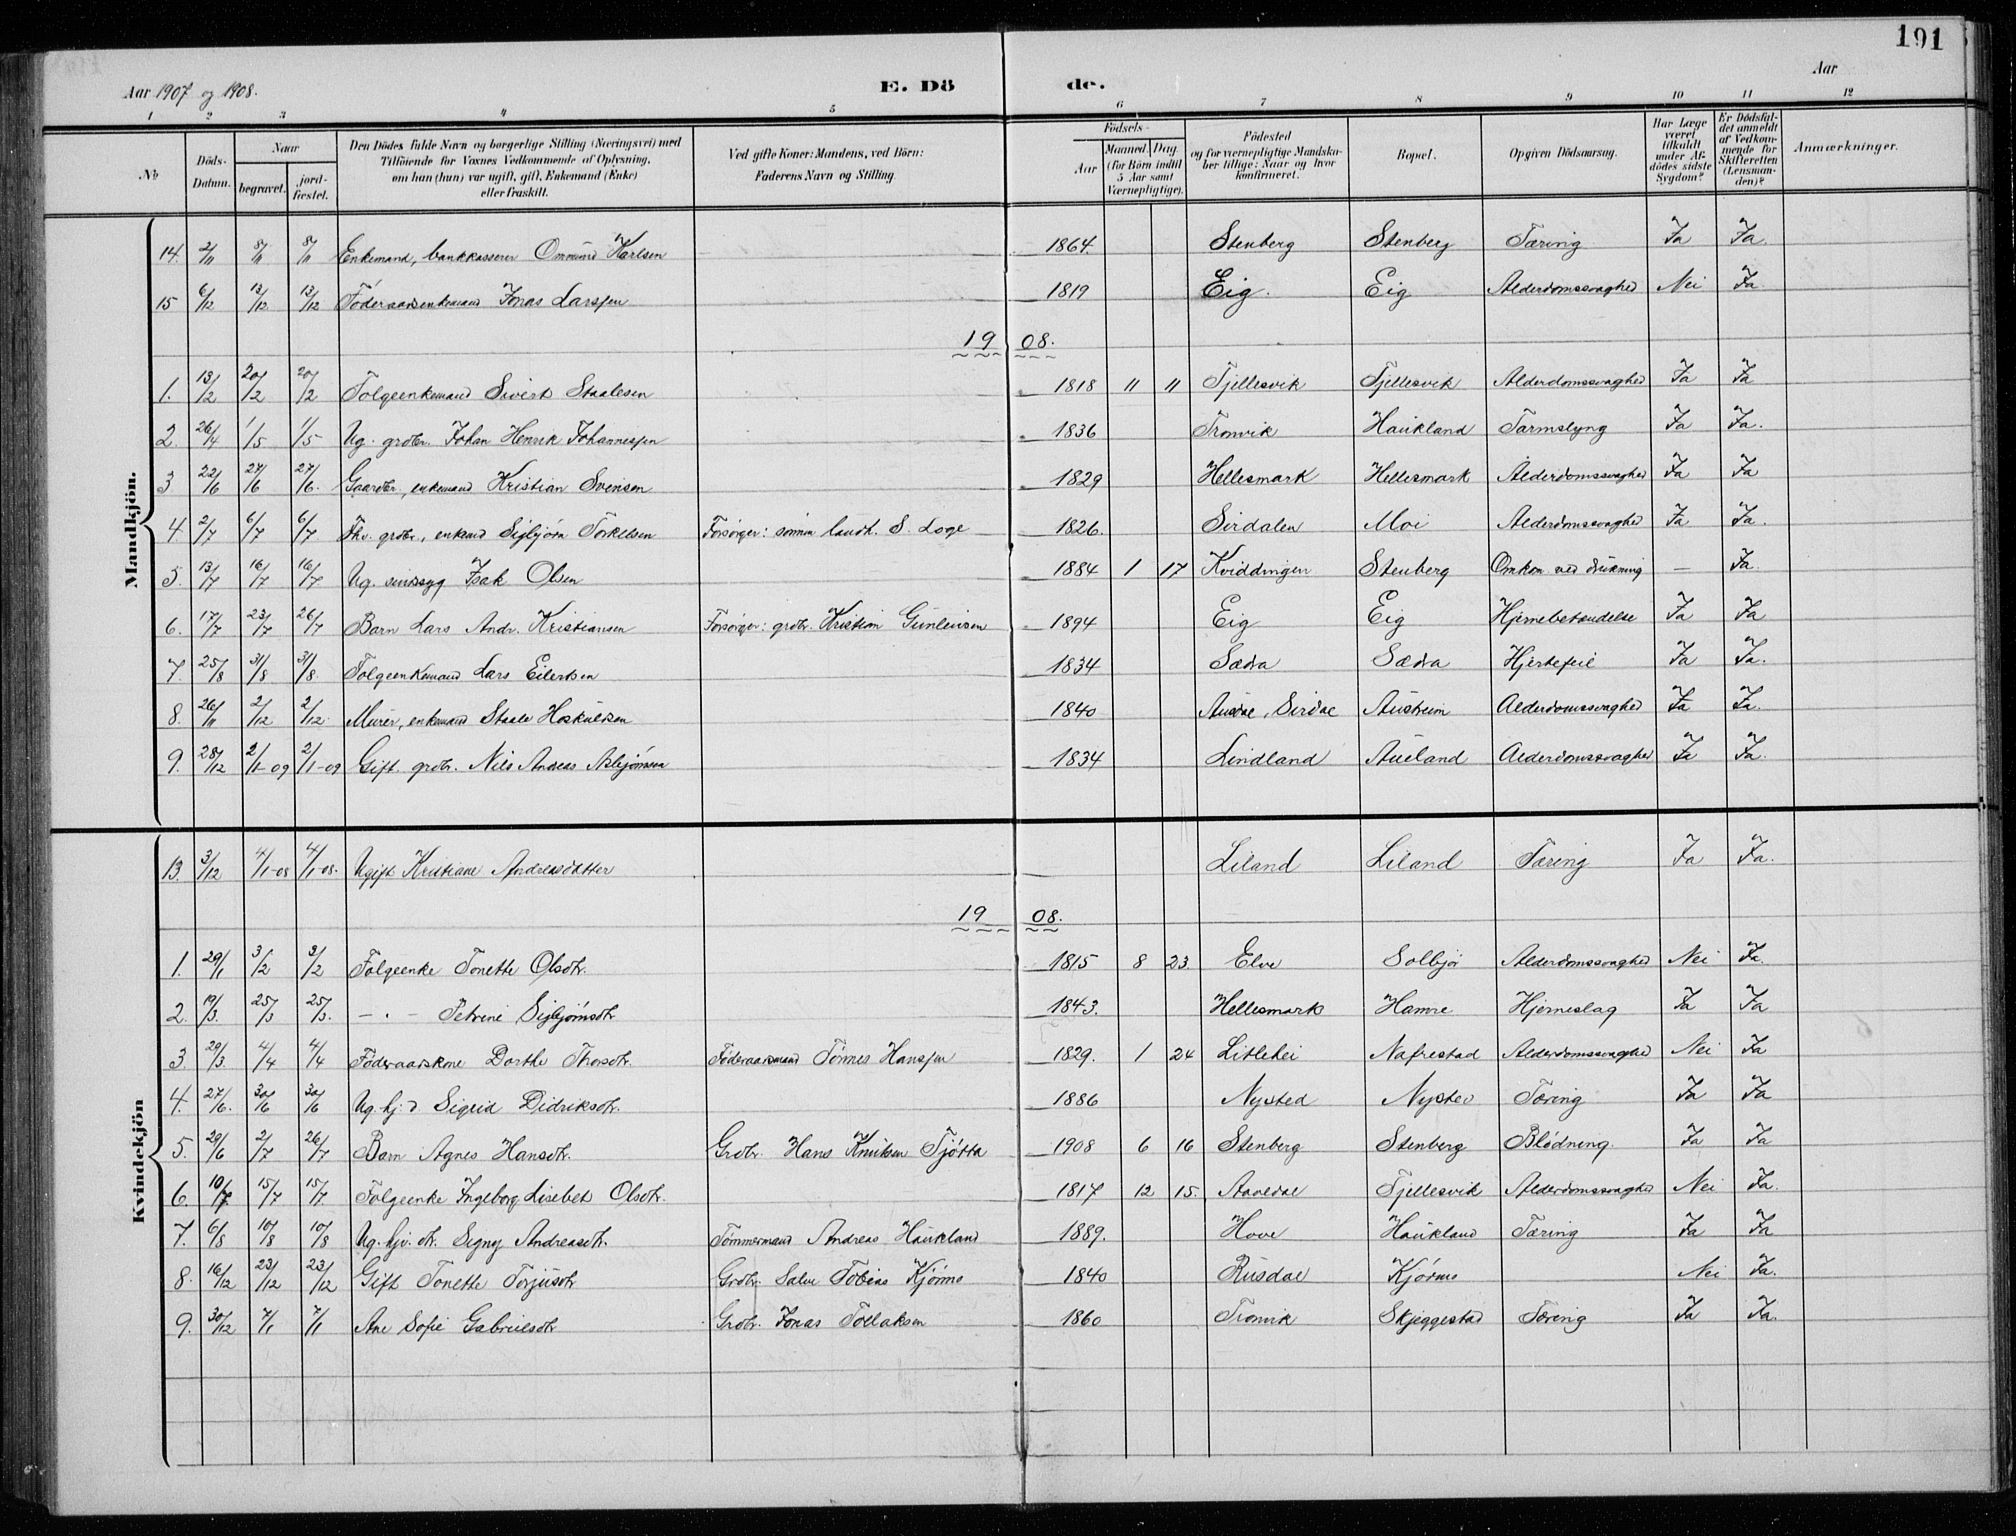 191
Aar 1907 og 1908.
E. Dö de.
Aar
1 2 3 4 5 6 7 8 9 10 11 12
No
Döds-Datum.
Naar
begravet.
jord-fæstet.
Den Dödes fulde Navn og borgerlige Stilling (Næringsvei) med Tilföiende for Voxnes Vedkommende af Oplysning, om han (hun) var ugift, gift, Enkemand (Enke) eller fraskilt.
Ved gifte Koner: Mandens, ved Börn: Faderens Navn og Stilling.
Födsels-
Aar
Maaned. Dag.
(for Börn indtil 5 Aar samt Værnepligtige).
Födested og for værnepligtige Mandskaber tillige: Naar og hvor konfirmeret.
Bopæl.
Opgiven Dödsaarsag.
Har Læge været tilkaldt under Afdödes sidste Sygdom?
Er Dödsfaldet anmeldt af Vedkommende for Skifteretten (Lensmanden)?
Anmærkninger.
Mandkjön.
14. 2/11 8/11 8/11 Enkemand, bankkasserer Ommund Karlsen 1864. Stenberg Stenberg Tæring Ja Ja.
15 6/12 13/12 13/12 Föderaadsenkemand Jonas Larssen 1819 Eig. Eig Alderdomssvaghed Nei Ja.
1908.
1. 13/2 20/2 20/2 Folgeenkemand Sivert Staalesen 1818 11 11 Fjellesvik Fjellesvik Alderdomssvaghed Ja Ja
2. 26/4 1/5 1/5 Ug. grdbr. Johan Henrik Johannessen 1836 Tronvik Haukland Tarmslyng Ja Ja.
3 22/6 27/6 27/6. Gaardbr., enkemand Kristian Svensen 1829 Hellesmark Hellesmark Alderdomssvaghed Ja Ja
4 2/7 6/7 6/7 Fhv. grdbr., enkemd Sigbjörn Torkelsen Forsörger: sönnen landh. S. Loge 1826. Sirdalen Moi Alderdomssvaghed Ja Ja.
5. 13/7 16/7 16/7 Ug. sindssyg Isak Olsen 1884 1 17 Kviddingen Stenberg Omkom ved drukning — Ja.
6. 17/7 23/7 26/7 Barn Lars Andr. Kristiansen Forsörger: grdbr. Kristian Gunleiksen 1894 Eig Eig Hjernebetændelse Ja Ja
7 25/8 31/8 31/8. Folgeenkemand Lars Eilertsen 1834 Sædra Sædra Hjertefeil Ja Ja.
8. 26/11 2/12 2/12. Murer, enkemand Staale Hoskuldsen 1840 Ausdal, Sirdal Austrum Alderdomssvaghed Ja Ja.
9. 28/12 2/1-09 2/1-09 Gift. grdbr. Nils Andreas Asbjörnsen 1834 Lindland Aueland Alderdomssvaghed Ja Ja.
Kvindekjön
13. 3/12 4/1-08 4/1-08. Ugift Kristiane Andreasdatter Liland Liland Tæring Ja Ja.
1908.
1. 29/1 3/2 3/2 Folgeenke Tonette Olsdtr. 1815 8 23. Elve Solbjör Alderdomssvaghed Nei Ja.
2. 19/3. 25/3 25/3. — " — Petrine Sigbjörnsdtr 1843. Hellesmark Hamre Hjerneslag Ja Ja
3. 29/3. 4/4 4/4 Föderaadskone Dorthe Thorsdtr. Föderaadsmand Tönnes Hanssen 1829. 1 24 Litlehei Nafrestad Alderdomssvaghed Nei Ja
4. 27/6. 30/6 30/6 Ug. hj. d Sigrid Didriksdtr. 1886 Nysted Nysted Tæring Ja Ja
5. 29/6 2/7 26/7 Barn Agnes Hansdtr. Grdbr. Hans Knutsen Tjötta 1908 6 16 Stenberg Stenberg Blödning. Ja Ja
6. 10/7 15/7 15/7. Folgeenke Ingeborg Lisebet Olsdtr. 1817 12 15. Aavedal Fjellesvik Alderdomssvaghed Nei Ja.
7. 6/8 10/8 10/8 Ug. hjv. dtr. Signy Andreasdtr. Tömmermand Andreas Haukland 1889. Hove Haukland Tæring Ja Ja
8. 16/12 23/12 23/12 Gift Tonette Torjusdtr Grdbr. Salve Tobias Kjörmo 1840 Rusdal Kjörmo Nei Ja.
9. 30/12 7/1 7/1 Ane Sofie Gabrielsdtr Grdbr. Jonas Tollaksen 1860 Tronvik Skjeggestad Tæring Ja Ja.